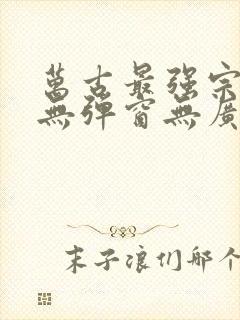 萬古最强宗
無彈窗無廣
末子浪们那个